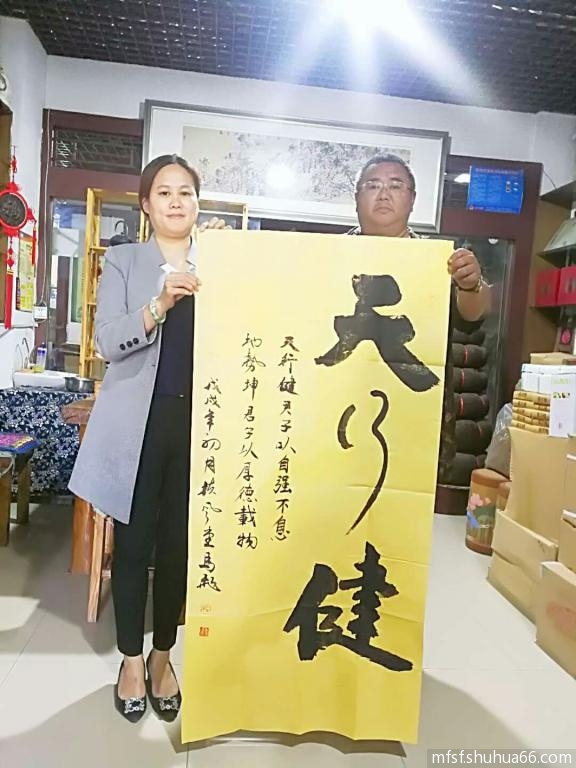 天行健
天行健君子以自强不息
地勢坤君子以厚德載物
戊戌年初
mfsf.shuhua66.com